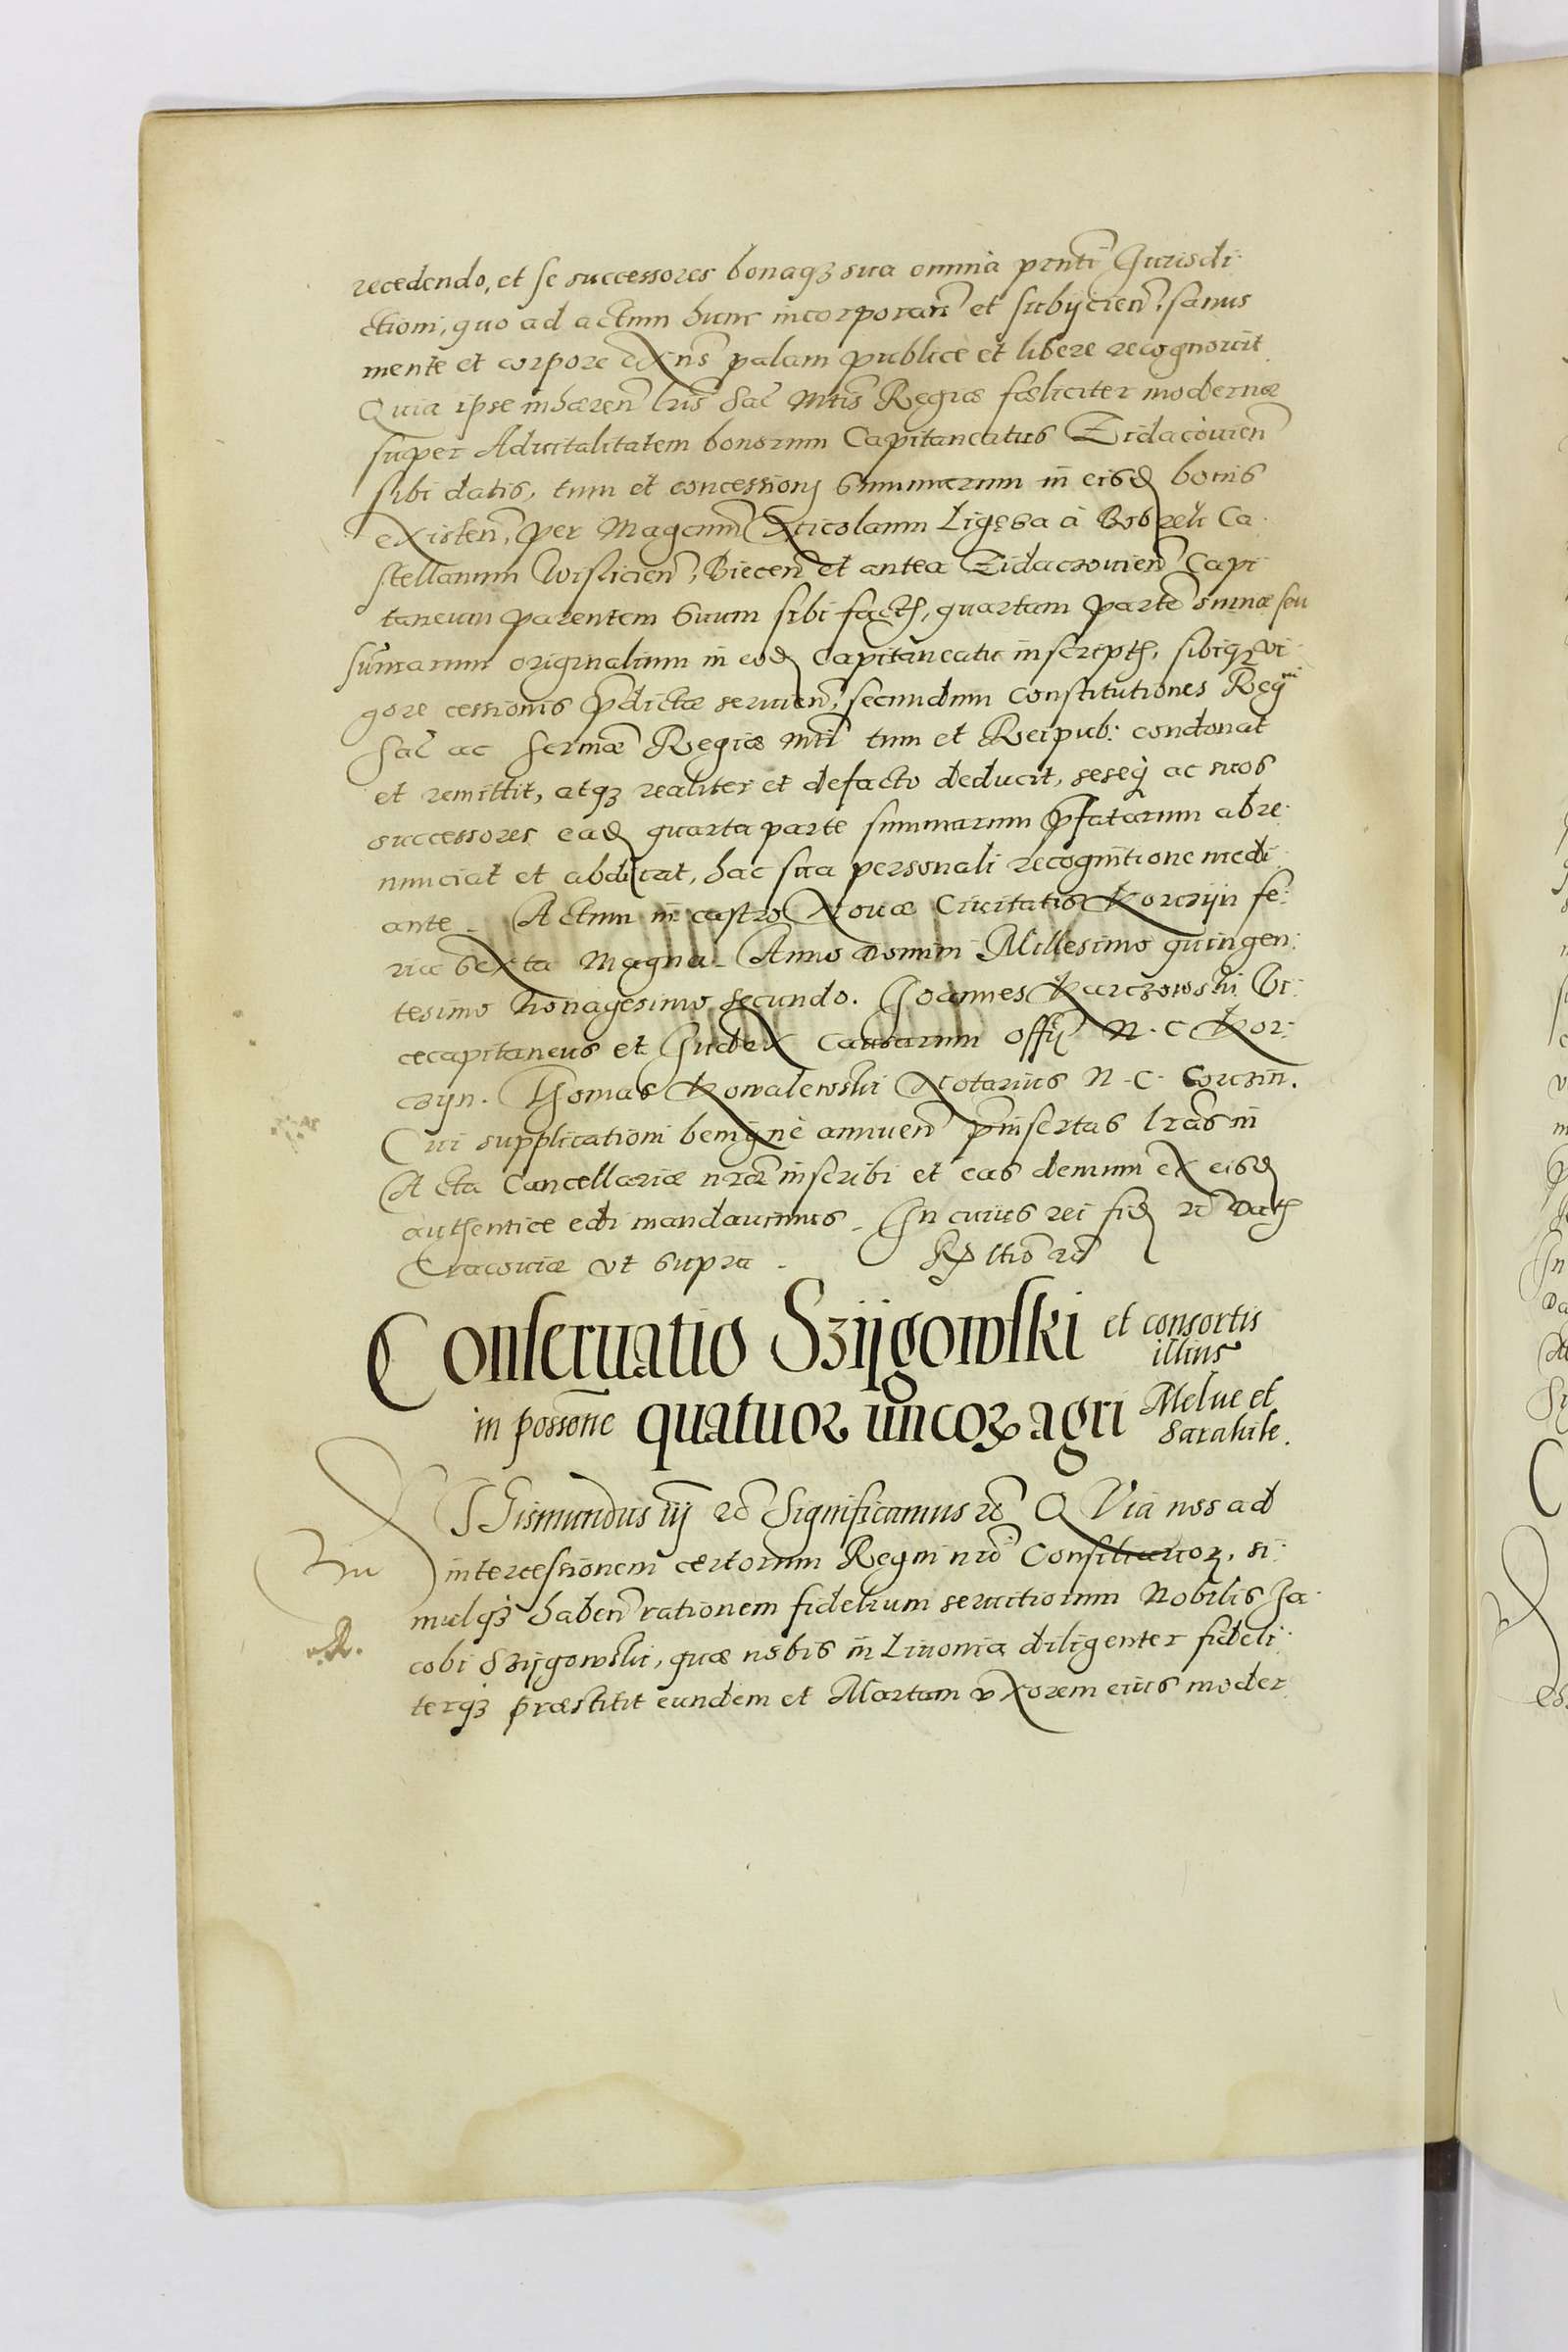 recedendo, et se successores bonaqz sua omnia prnti Jurisdi
ctioni, quo ad actum hunc incorporan et subijcien, sanus
mente et corpore exns palam publicè et libere recognovit
Quia ipse inhæren lris Sac Mtis Regiæ fœliciter modernæ
super Advitalitatem bonorum Capitaneatus Zidacòvien
sibi datis, tum et concessioni summarum in eisd bonis
existen, per Magcum Nicolaum Ligęza à Bobrek Ca
stellanum Wislicien, Biecen et antea Zidaczovien Capi
taneum parentem suum sibi facth, quartam parte sumæ seu
sumarum originalium in eod Capitaneatu inscripth, sibiqz vi
gore cessionis pdictæ servien, secundum Constitutiones Regni
Sac ac Sermæ Regiæ Mti tum et Reipub: condonat
et remittit, atqz realiter et defacto deducit, seseq ac suos
successores ead quarta parte summarum pfatarum abre
nunciat et abdicat, hac sua personali recognitione medi
ante. Actum in castro Novæ Civitatis Korczijn fe
ria sexta Magna. Anno Domini Millesimo quingen
tesimo Nonagesimo secundo. Joannes Karczowski Vi
cecapitaneus et Judex Causarum Offij N. C Kor
czijn. Thomas Kowalewski Notarius N. C. Corczin.
Cui supplicationi benignè annuen pinsertas lras in
Acta Cancellariæ nræ inscribi et eas demum ex eisd
authentice edi mandavimus. In cuius rei fid rc Dath
Cracoviæ ut supra.
Conservatio Szijgowski et consortis
illius
in possone quatuor uncorz agri Melue et
Sarakile.
Sigismundus iij rc Significamus rc Quia nos ad
intercessionem certorum Regni nri Consiliarior, si
mulqz haben rationem fidelium servitiorum Nobilis Ja
cobi Szijgowski, quæ nobis in Livonia diligenter fideli
terqz præstitit eundem et Martam uxorem eius moder